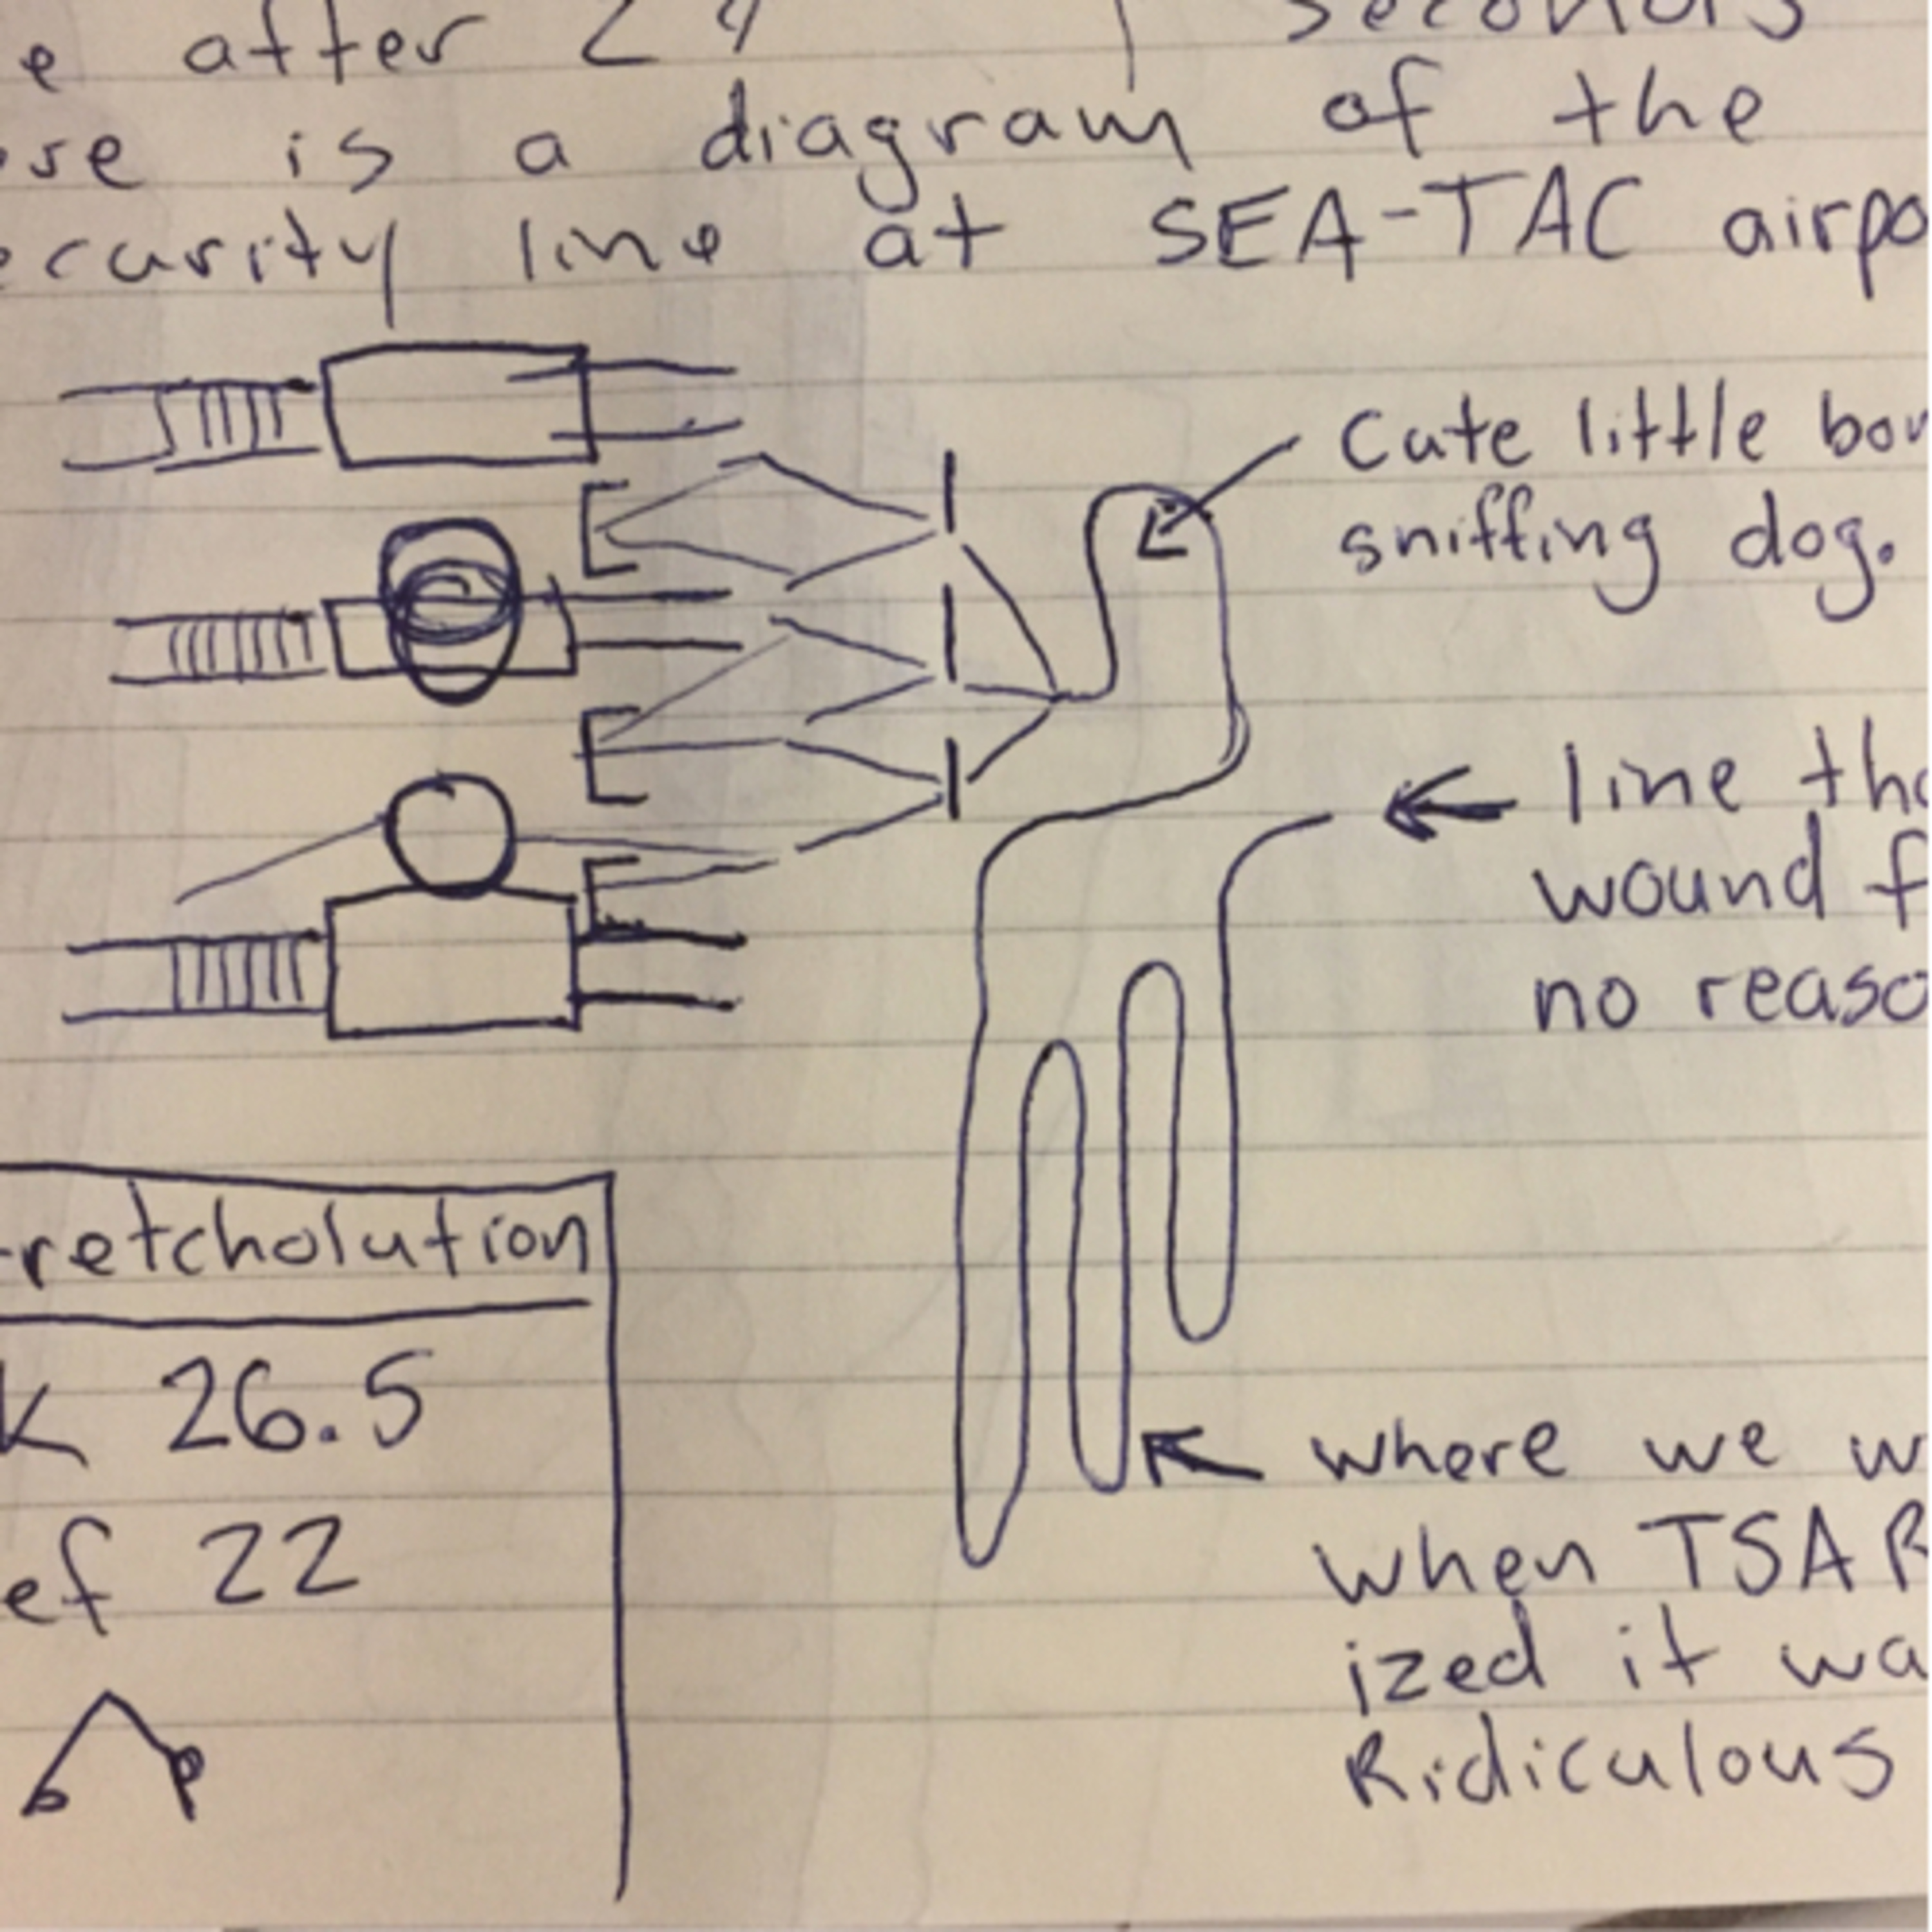 e after 29 seconds
ose is a diagram of the
ecurity line at SEA-TAC airpo
Cute little bom
sniffing dog.
line tha
wound f
no reaso
retcholution
k 26.5
ef 22
where we w
when TSA R
ized it wa
Ridiculous